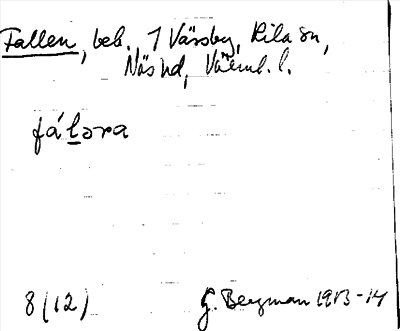 Fallen, beb., 1 Värsby, Kila sn,
Näs hd, Värml. l.
fálәra
8 (12) G. Bergman 1913-14